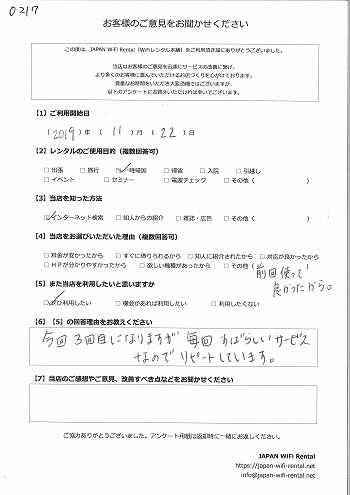 0217
お客様のご意見をお聞かせください
この度は、JAPAN WiFi Rental（WiFiレンタル本舗）をご利用頂き誠にありがとうございました。
当店はお客様のご意見を迅速にサービスの改善に繋げ、
より多くのお客様に喜んでいただけるお店づくりを心がけております。
貴重なお時間をいただき大変恐縮ではございますが、
以下のアンケートにお答えいただければ幸いでございます。
【1】ご利用開始日
（2019）年（11）月（22）日
【2】レンタルのご使用目的（複数回答可）
□出張 □旅行 ☑一時帰国 □帰省 □入院 □引越し
□イベント □セミナー □電波チェック □その他（ ）
【3】当店を知った方法
☑インターネット検索 □知人からの紹介 □雑誌・広告 □その他（ ）
【4】当店をお選びいただいた理由（複数回答可）
□料金が安かったから □すぐに借りられるから □知人に紹介されたから □対応が良かったから
□ＨＰが分かりやすかったから □欲しい機種があったから □その他（前回使って
良かったから。
【5】また当店を利用したいと思いますか
☑ぜひ利用したい □機会があれば利用したい □利用したくない
【6】【5】の回答理由をお教えください
今回3回目になりますが 毎回すばらしいサービス
なのでリピートしています。
【7】当店のご感想やご意見、改善すべき点などをお聞かせください
ご協力ありがとうございました。アンケート用紙は返却時に一緒にお返しください。
JAPAN WiFi Rental
https://japan-wifi-rental.net
info@japan-wifi-rental.net